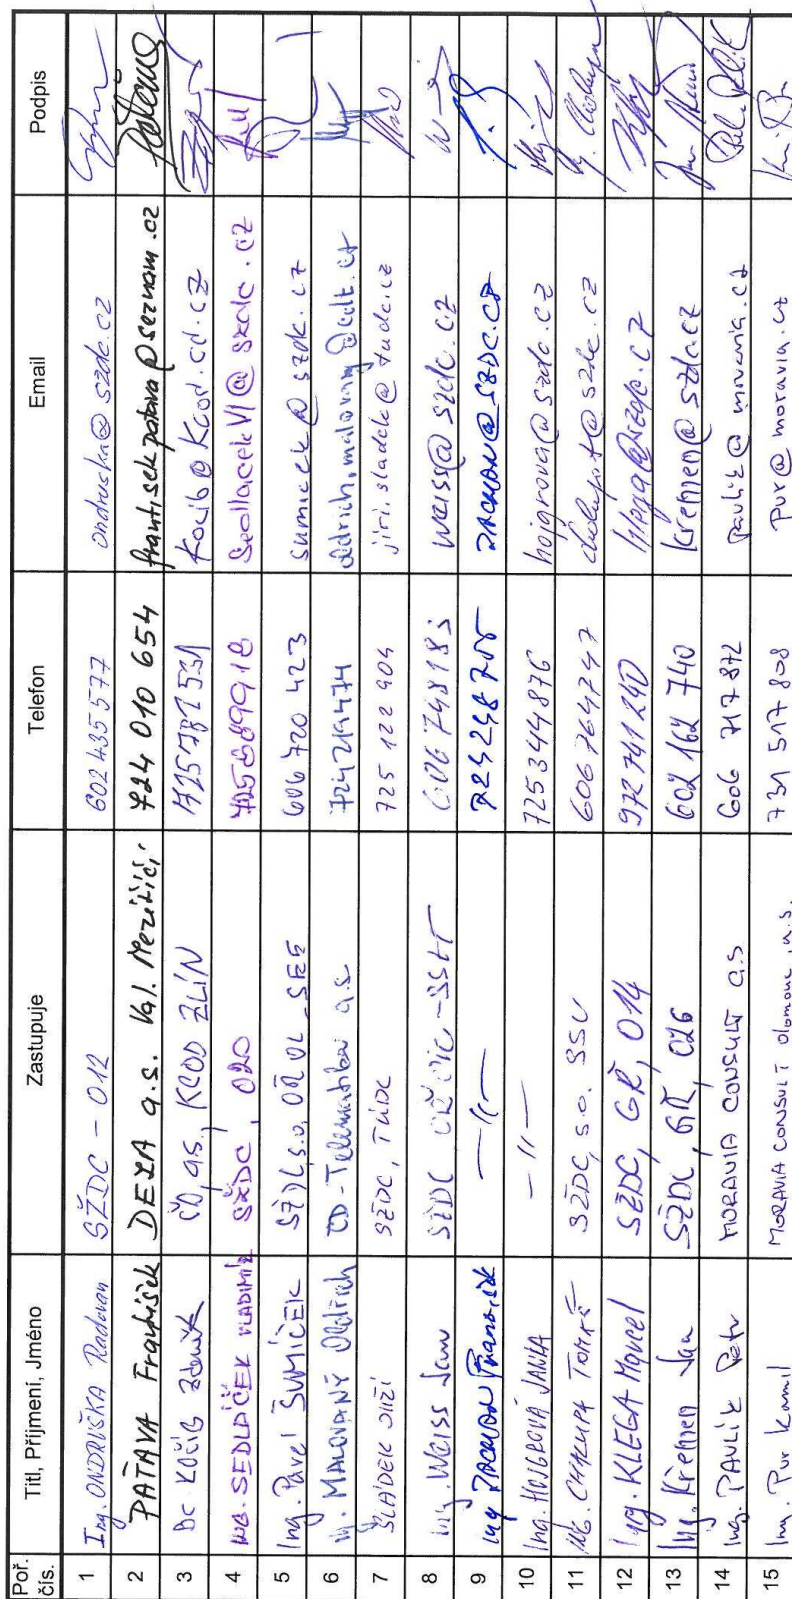 Poř. čís. Titl, Příjmení, Jméno Zastupuje Telefon Email Podpis
1 Ing. ONDRUŠKA Radovan SŽDC - 012 602 435 577 ondruska@szdc.cz
2 PATAVA František DEZA a.s. Val. Meziříčí 724 010 654 frantisek.patava@seznam.cz
3 Bc. KOČÍB Zdeněk ČD, a.s., KCOD ZLÍN 725 781 531 Kocib@Kcod.cd.cz
4 ING. SEDLÁČEK VLADIMÍR SŽDC, O20 725889918 SedlacekVl@szdc.cz
5 Ing. Pavel ŠUMÍČEK SŽDC s.o. OŘ OL SEE 606 720 423 sumicek@szdc.cz
6 MALOVANÝ Oldřich ČD-Telematika a.s. 724219474 oldrich.malovany@cdt.cz
7 SLÁDEK JIŘÍ SŽDC, TÚDC 725 122 904 jiri.sladek@tudc.cz
8 Ing. Weiss Jan SŽDC 606 748183 weiss@szdc.cz
9 Ing. ZACHAN František -//- @SZDC.CZ
10 Ing. HOJGROVÁ JANKA -//- 725344876 hojgrova@szdc.cz
11 Ing. CHALUPA TOMÁŠ SŽDC, s.o. SSV 606764747 @szdc.cz
12 Ing. KLEGA Marcel SŽDC, GŘ, O14 972 741 240 klega@szdc.cz
13 Ing. Křemen Jan SŽDC, GŘ, O26 602 162 740 Kremen@szdc.cz
14 Ing. PAVLÍK Petr MORAVIA CONSULT a.s. 606 717 872 pavlik@moravia.cz
15 Ing. Pur Kamil MORAVIA CONSULT Olomouc, a.s. 731 517 808 pur@moravia.cz